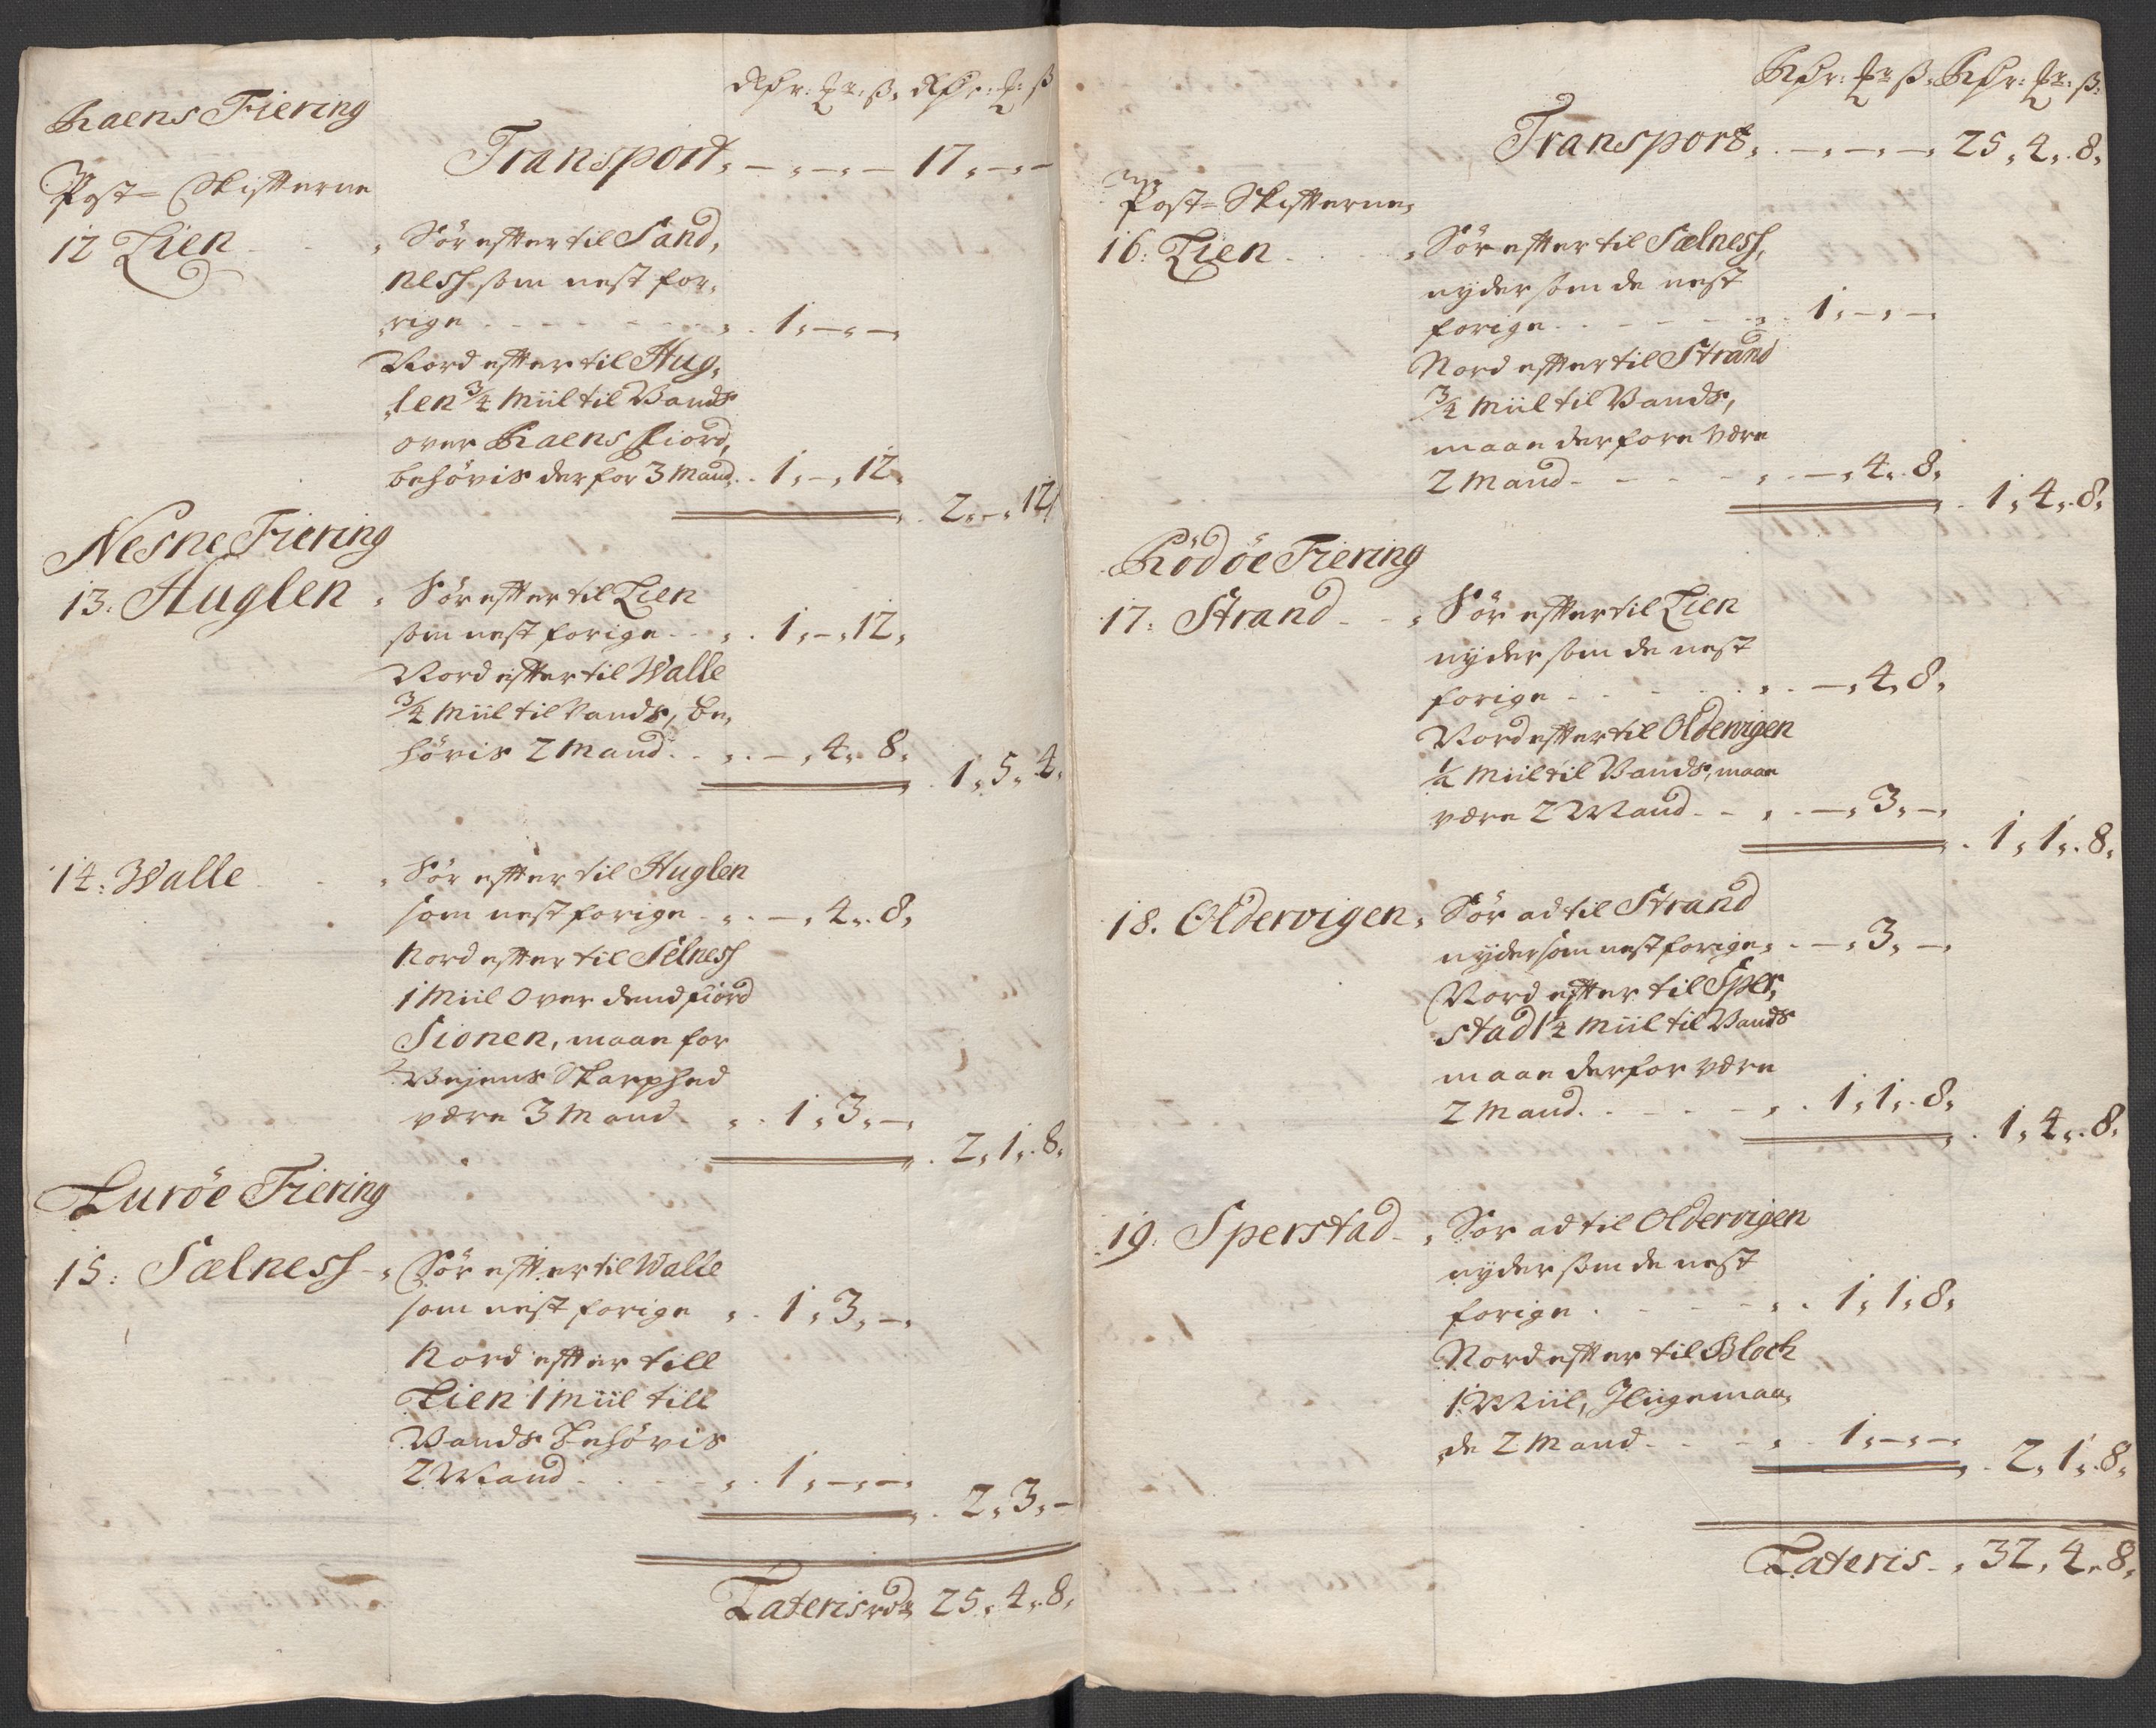 Rdr: £r: ß. Rdr: £: ß
Raens Fiering
Transport. - . - . - 17. - . -
Post = Skifterne
12 Lien . . . Sör effter til Sand,
nesh som nest for,
rige . . . 1. - . -
Nord effter til Hug,
len 3/4 Miil til Vands
over Raens Fiord,
behövis der for 3 Mand. . 1. - . 12.
2. - . 12
Nesne Fiering
13. Huglen . Sör effter til Lien
som nest forige . . 1. - . 12.
Nord effter til Walle
3/4 Miil til Vands, be,
hövis 2 Mand . . . - . 4. 8.
1. 5. 4.
14. Walle . . Sör effter til Huglen
som nest forige . . - . 4. 8.
Nord effter til Selnesh
1 Miil over dend fiord
Sionen, maae for
Vejens Skarphed
være 3 Mand . . 1. 3. -.
2. 1. 8.
Luröe Fiering
15: Sælnesh - . Sör effter til Walle
som nest forige . . 1. 3. -.
Nord effter till
Lien 1 Miil till
Vands behövis
2 Mand . . . 1. - . -.
2. 3. -
Lateris rdr 25. 4. 8.
Rdr: £r ß. Rdr: £r. ß:
Transport. . - . - . - . 25. 4. 8.
Post = Skifterne.
16: Lien . . . Sör effter til Sælnesh,
nyder som de nest
forige . . . 1. - . -.
Nord effter til Strand
3/4 Miil til Vands,
maae derfore være
2 Mand - - - . . - . 4. 8.
1. 4. 8.
Rödöe Fiering
17: Strand - - . Sör effter til Lien
nyder som de nest
forige . . . - . 4. 8.
Nord effter til Oldervigen
1/2 Miil til Vands, maae
være 2 Mand - - . . - . 3. -.
1. 1. 8.
18. Oldervigen. Sör ad til Strand
nyder som nest forige. . - . 3. -.
Nord effter til Sper,
stad 1 1/4 Miil til Vands
maae der for være
2 Mand. . . . 1. 1. 8.
1. 4. 8.
19. Sperstad - . Sör ad til Oldervigen
nyder som de nest
forige . . . 1. 1. 8.
Nord effter til Bloch
1 Miil, Jligemaa,
de 2 Mand - . . 1. - . -.
2. 1. 8.
Lateris - . 32. 4. 8.